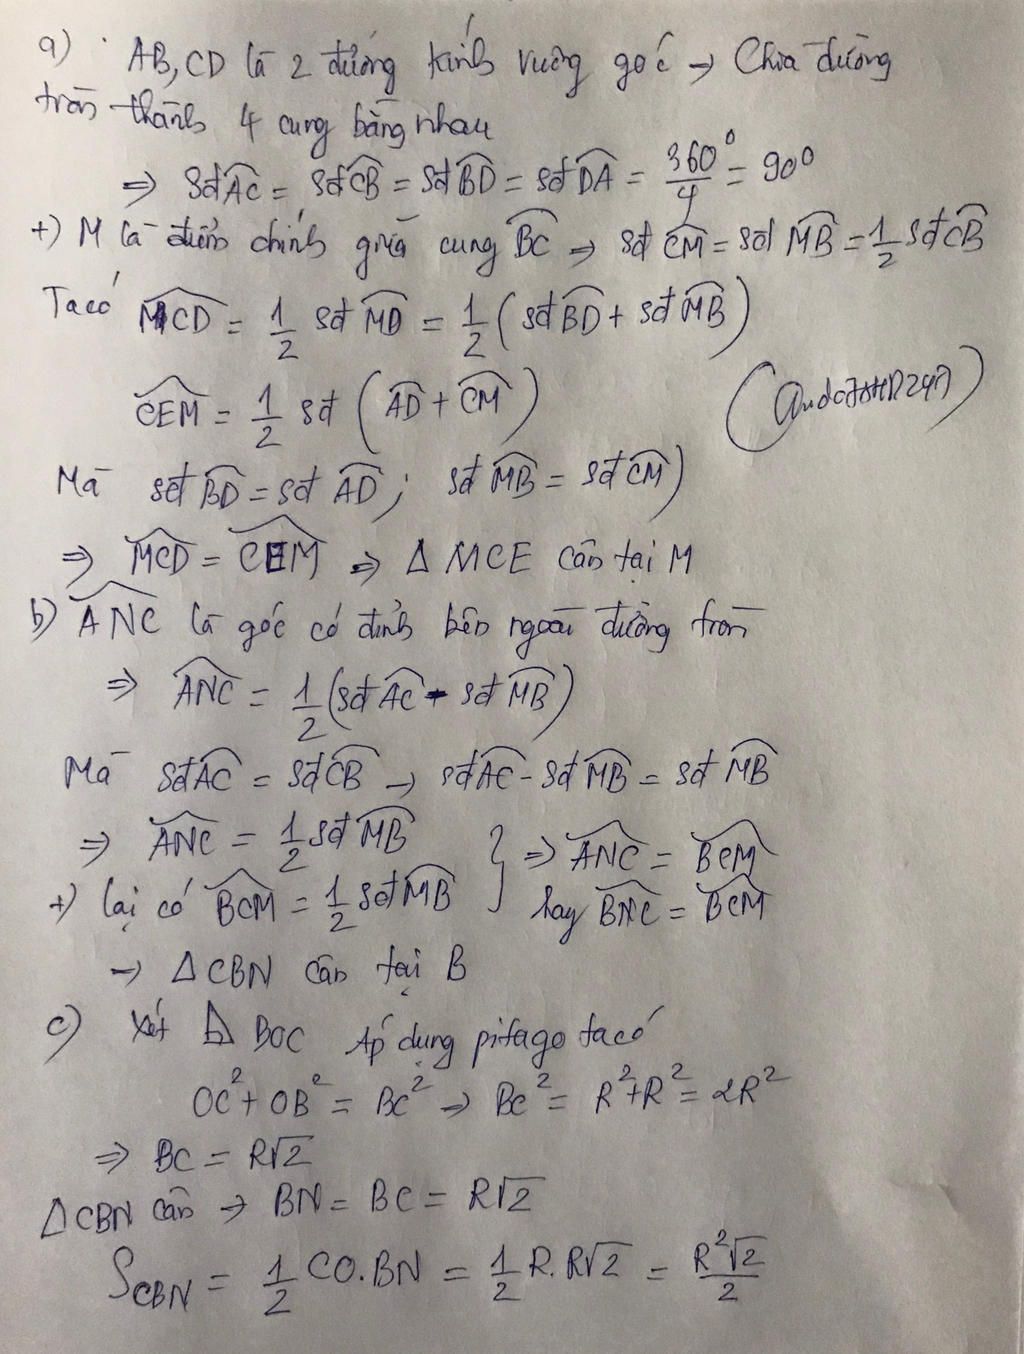 a) AB, CD là 2 đường kính vuông góc → Chia đường
tròn thành 4 cung bằng nhau
⇒ Sđ AC = Sđ CB = Sđ BD = Sđ DA = 360°/4 = 90°
+) M là điểm chính giữa cung BC ⇒ sđ CM = sđ MB = 1/2 sđ CB
Ta có MCD = 1/2 sđ MD = 1/2 (sđ BD + sđ MB)
CEM = 1/2 sđ (AD + CM)
Mà sđ BD = sđ AD ; sđ MB = sđ CM)
⇒ MCD = CEM ⇒ Δ MCE cân tại M
b) ANC là góc có đỉnh bên ngoài đường tròn
⇒ ANC = 1/2 (sđ AC - sđ MB)
Mà sđ AC = sđ CB → sđ AC - sđ MB = sđ MB
⇒ ANC = 1/2 sđ MB } ⇒ ANC = BCM
+) lại có BCM = 1/2 sđ MB hay BNC = BCM
→ Δ CBN cân tại B
c) Xét Δ BOC Áp dụng pitago ta có
OC² + OB² = BC² → BC² = R² + R² = 2R²
⇒ BC = R√2
Δ CBN cân → BN = BC = R√2
S CBN = 1/2 CO.BN = 1/2 R.R√2 = R²√2/2